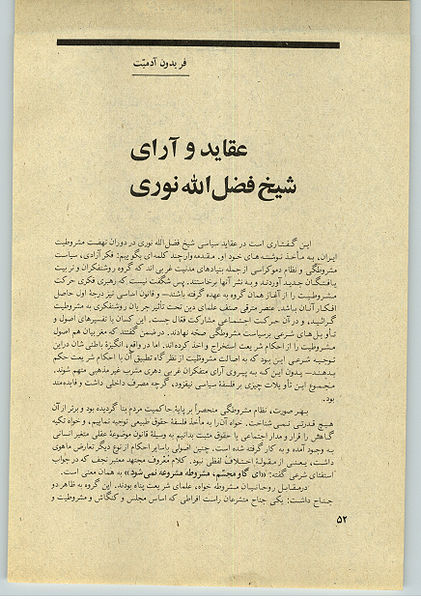 فریدون آدمیّت
عقاید و آرای
شیخ فضل الله نوری
این گفتاری است در عقاید سیاسی شیخ فضل الله نوری در دوران نهضت مشروطیت
ایران، به مأخذ نوشته‌های خود او. مقدمه‌وار چند کلمه‌ای بگوییم: فکر آزادی، سیاست
مشروطگی و نظام دموکراسی از جمله بنیادهای مدنیت غربی‌اند که گروه روشنفکران و تربیت
یافتگان جدید آوردند و به نشر آنها برخاستند. پس شگفت نیست که رهبری فکری حرکت
مشروطیت را از آغاز همان گروه به عهده گرفته باشند— و قانون اساسی نیز درجهٔ اول حاصل
افکار آنان باشد. عنصر مترقی صنف علمای دین تحت تأثیر جریان روشنفکری به مشروطیت
گرائید، و در آن حرکت اجتماعی مشارکت فعال جست. این کسان با تفسیرهای اصولی و
تأویل‌های شرعی بر سیاست مشروطگی صحه نهادند. در ضمن گفتند که مغربیان هم اصول
مشروطیت را از احکام شریعت استخراج و اخذ کرده‌اند. اما در واقع، انگیزهٔ باطنی شان دراین
توجیه شرعی این بود که به اصالت مشروطیت از نظرگاه تطبیق آن با احکام شریعت حکم
بدهند— بدون این که به پیروی آرای متفکران غربی دهری مشرب غیر مذهبی متهم شوند.
مجموع این تأویلات چیزی بر فلسفهٔ سیاسی نیفزود، گرچه مصرف داخلی داشت و فایده‌مند
بود.
بهر صورت، نظام مشروطگی منحصراً بر پایهٔ حاکمیت مردم بنا گردیده بود و برتر از آن
هیچ قدرتی نمی‌شناخت. خواه آن را به مأخذ فلسفهٔ حقوق طبیعی توجیه نماییم، و خواه تکیه
گاهش را قرار و مدار اجتماعی یا حقوق مثبت بدانیم به وسیلهٔ قانون موضوعهٔ عقلی متغیر انسانی
به وجود آمده و به کار گرفته شده است. چنین اصولی با سایر احکام از نوع دیگر تعارض ماهوی
داشت، یعنی از مقولهٔ اختلاف لفظی نبود. کلام معروف مجتهد معتبر نجف که در جواب
استفتای شرعی گفته: «ای گاو مجسّم، مشروطه مشروعه نمی شود» به همان معنی است.
در مقابل روحانیان مشروطه خواه، علمای شریعت پناه بودند. این گروه به ظاهر دو
جناح داشت: یکی جناح متشرعان راست افراطی که اساس مجلس و کنگاش و مشروطیت و
۵۲